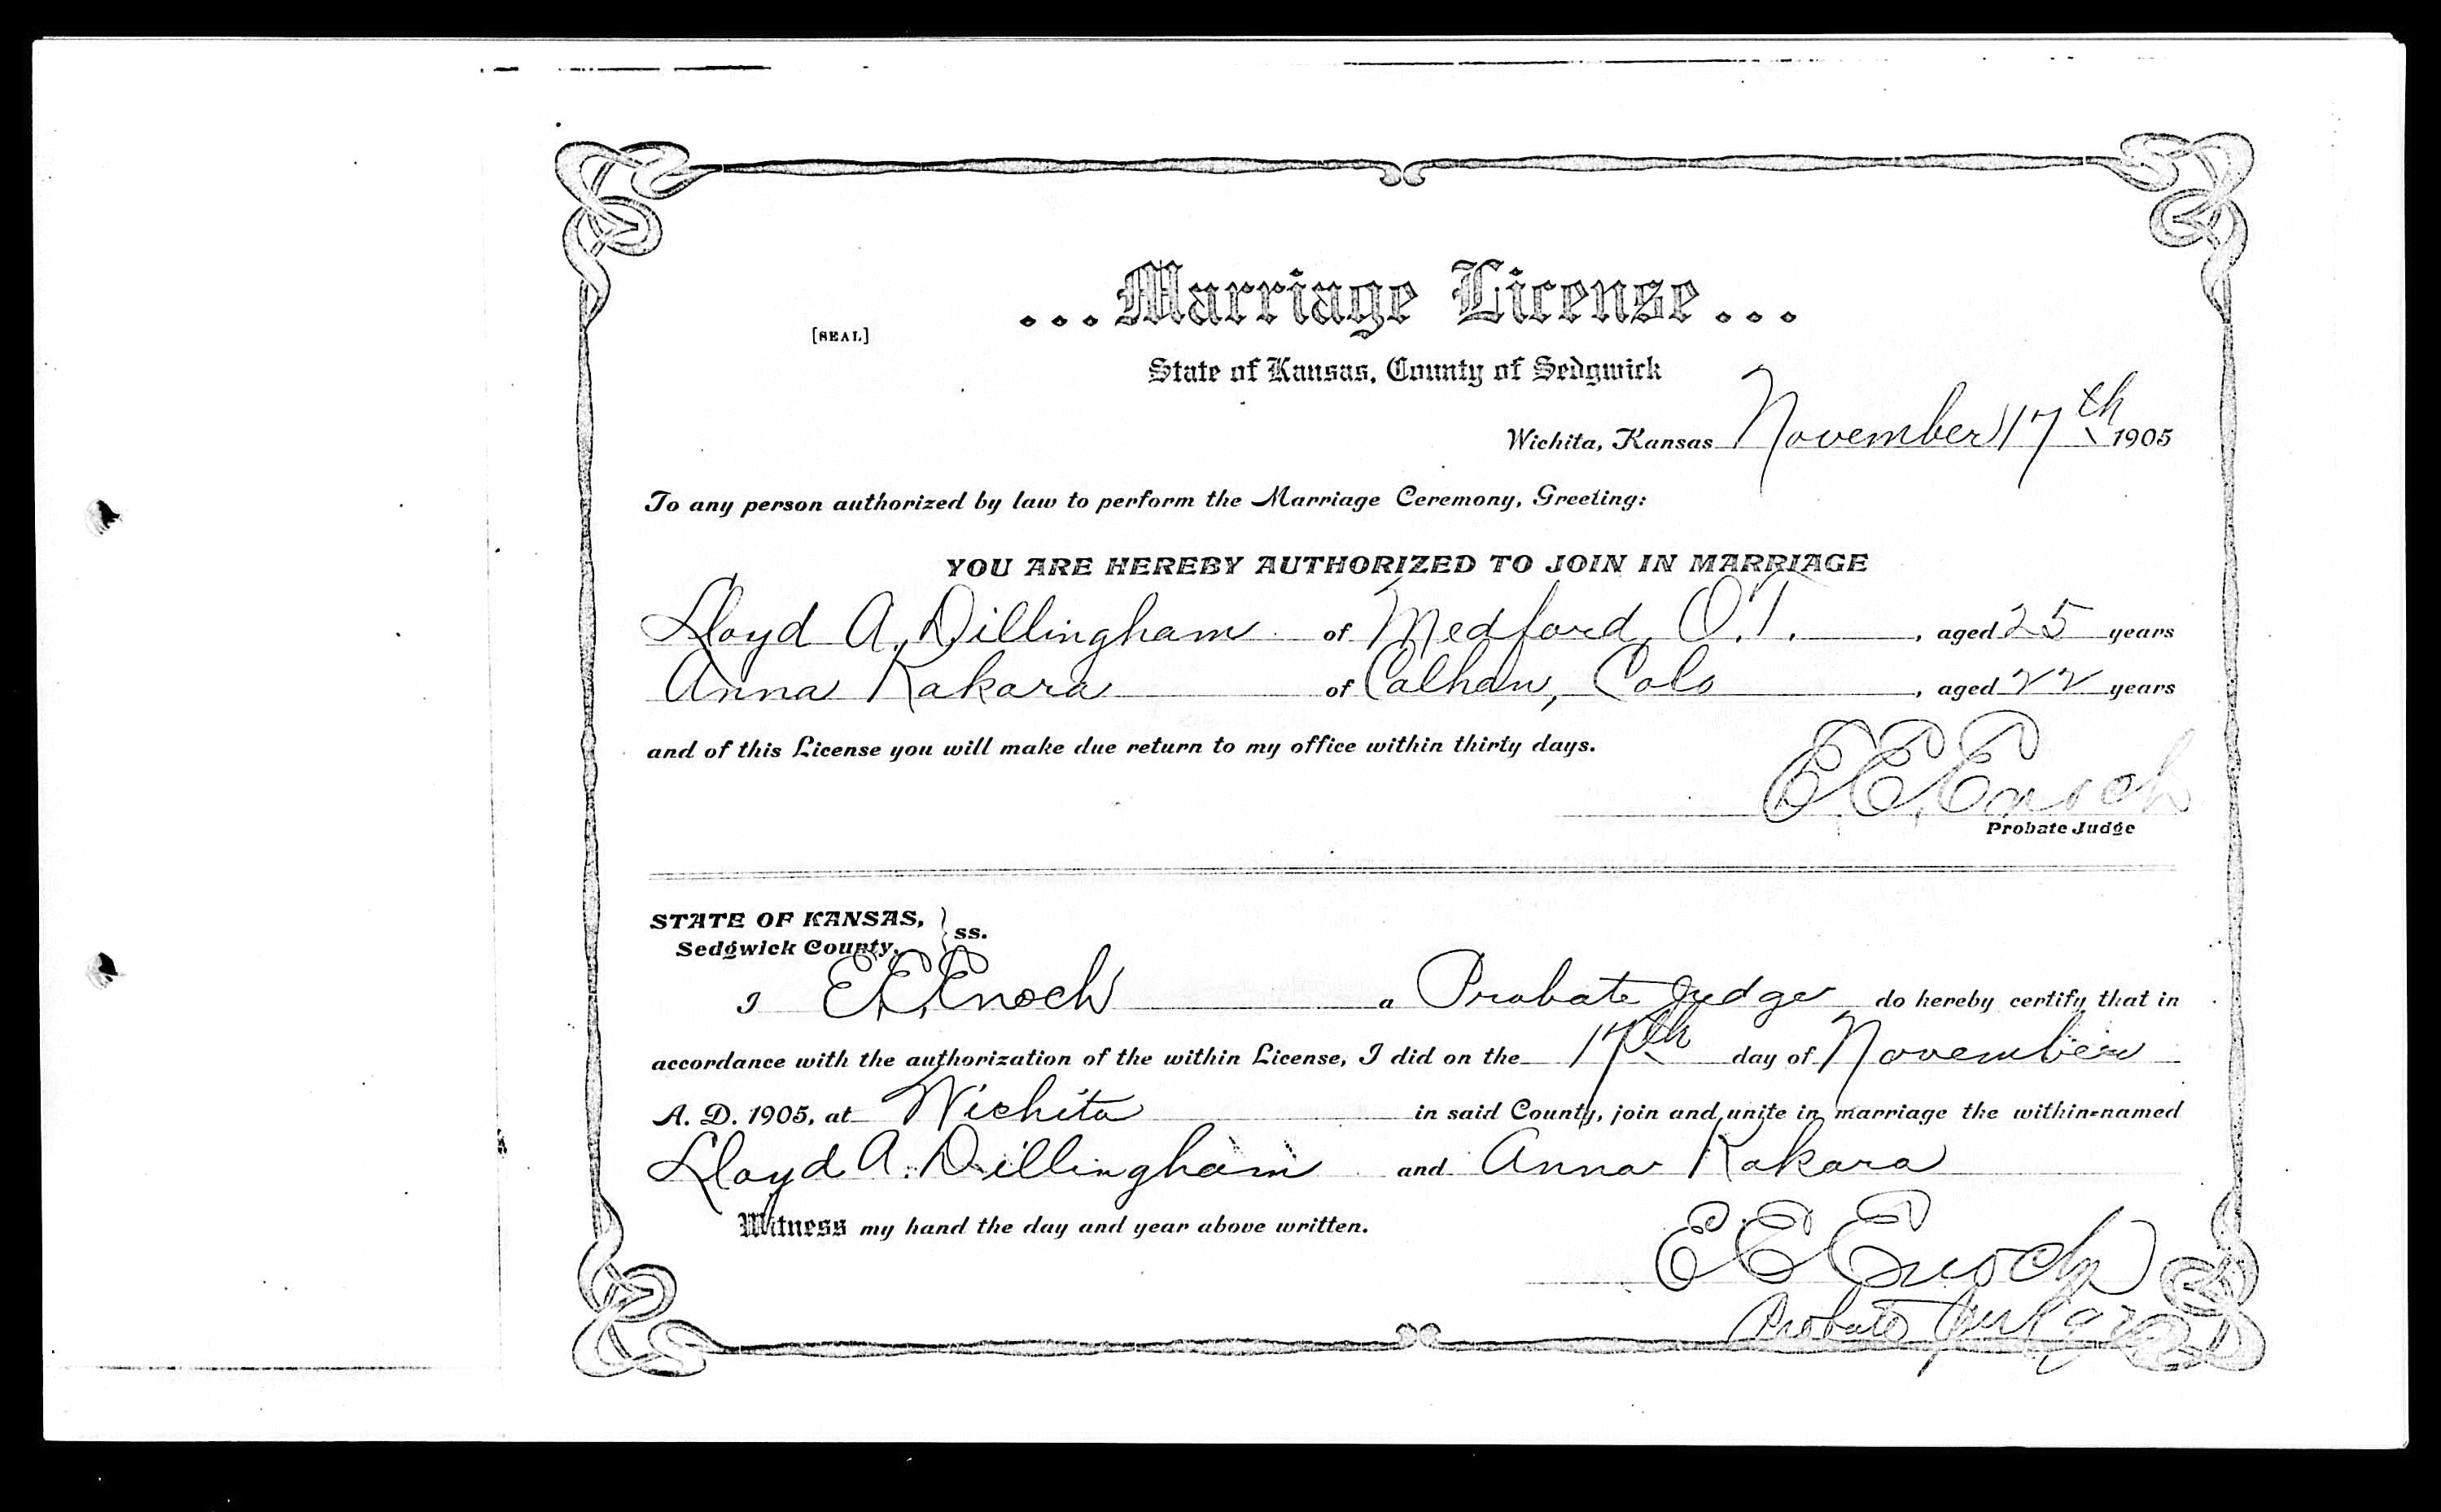 ...Marriage License...
[SEAL]
State of Kansas, County of Sedgwick
Wichita, Kansas November 17th 1905
To any person authorized by law to perform the Marriage Ceremony, Greeting:
YOU ARE HEREBY AUTHORIZED TO JOIN IN MARRIAGE
Lloyd A. Dillingham of Medford, O.T. , aged 25 years
Anna Kakara of Calhan, Colo , aged 22 years
and of this License you will make due return to my office within thirty days.
E.E. Enoch
Probate Judge
STATE OF KANSAS, } ss.
Sedgwick County,
I E.E. Enoch a Probate Judge do hereby certify that in
accordance with the authorization of the within License, I did on the 17th day of November
A. D. 1905, at Wichita in said County, join and unite in marriage the within-named
Lloyd A. Dillingham and Anna Kakara
Witness my hand the day and year above written.
E E Enoch
Probate Judge